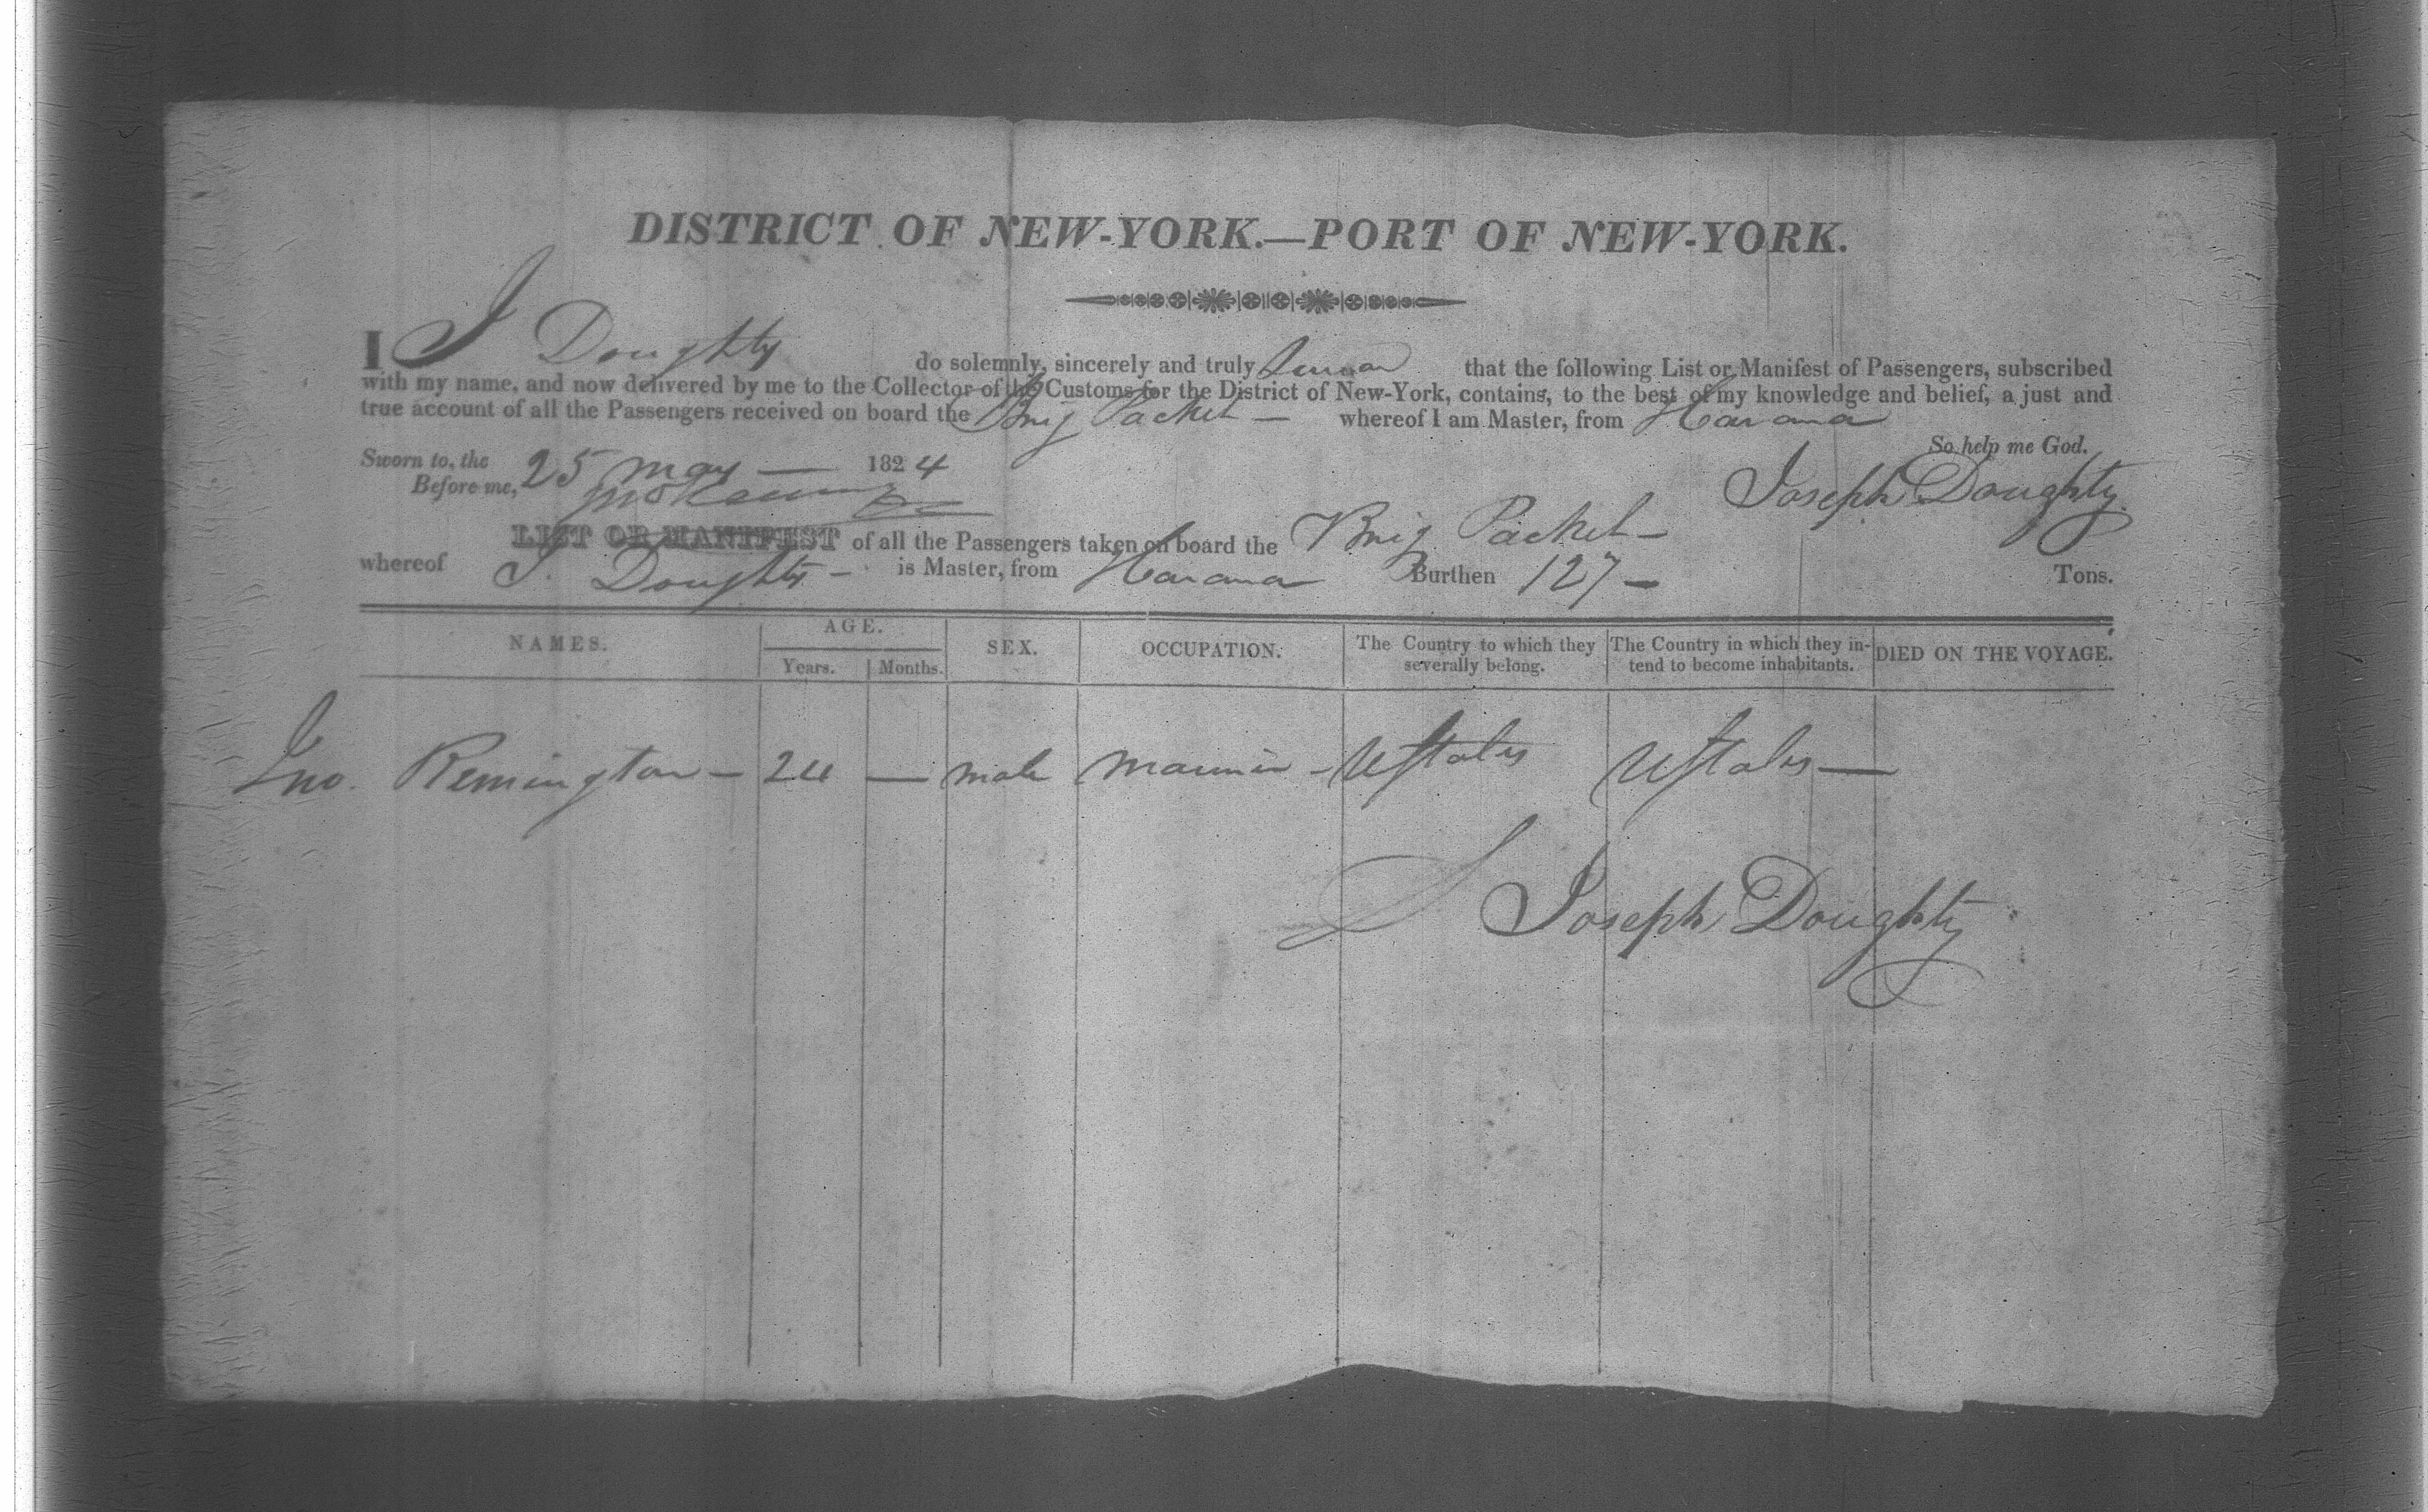 DISTRICT OF NEW-YORK.—PORT OF NEW-YORK.
I J Doughty do solemnly, sincerely and truly swear that the following List or Manifest of Passengers, subscribed
with my name, and now delivered by me to the Collector of the Customs for the District of New-York, contains, to the best of my knowledge and belief, a just and
true account of all the Passengers received on board the Brig Packet — whereof I am Master, from Havana
So help me God.
Sworn to, the 25 May — 1824
Before me,
Joseph Doughty
LIST OR MANIFEST of all the Passengers taken on board the Brig Packet —
whereof J. Doughty — is Master, from Havana Burthen 127 — Tons.
NAMES. AGE. SEX. OCCUPATION. The Country to which they severally belong. The Country in which they in-tend to become inhabitants. DIED ON THE VOYAGE.
Years. Months.
Jno. Remington — 24 — male mariner — UStates UStates —
Joseph Doughty